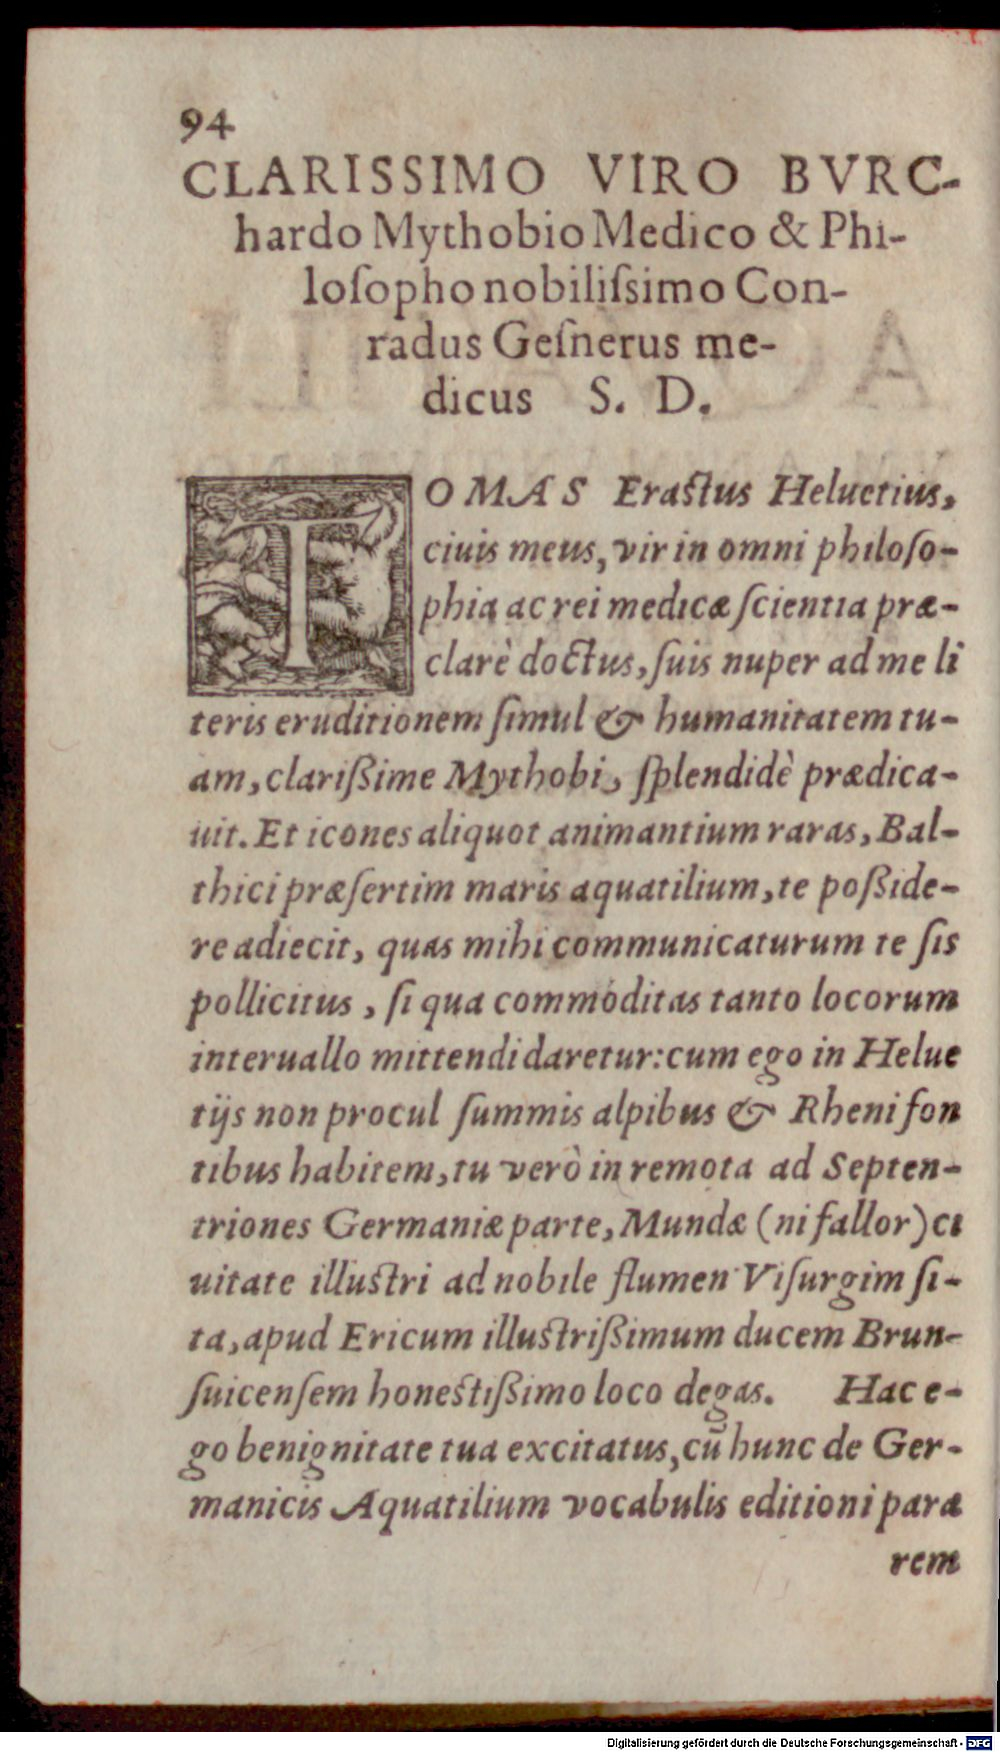 94
CLARISSIMO VIRO BVRC-
hardo Mythobio Medico & Phi-
loſopho nobiliſsimo Con-
radus Geſnerus me-
dicus S. D.
TOMAS Eraſtus Heluetius,
ciuis meus, vir in omni philoſo-
phia ac rei medicæ ſcientia præ-
clarè doctus, ſuis nuper ad me li
teris eruditionem ſimul & humanitatem tu-
am, clarißime Mythobi, ſplendidè prædica-
uit. Et icones aliquot animantium raras, Bal-
thici præſertim maris aquatilium, te poßide-
re adiecit, quas mihi communicaturum te ſis
pollicitus, ſi qua commoditas tanto locorum
interuallo mittendi daretur: cum ego in Helue
tijs non procul ſummis alpibus & Rheni fon
tibus habitem, tu verò in remota ad Septen-
triones Germaniæ parte, Mundæ (ni fallor) ci
uitate illuſtri ad nobile flumen Viſurgim ſi-
ta, apud Ericum illuſtrißimum ducem Brun-
ſuicenſem honeſtißimo loco degas. Hac e-
go benignitate tua excitatus, cū hunc de Ger-
manicis Aquatilium vocabulis editioni para
rem
Digitalisierung gefördert durch die Deutsche Forschungsgemeinschaft - DFG